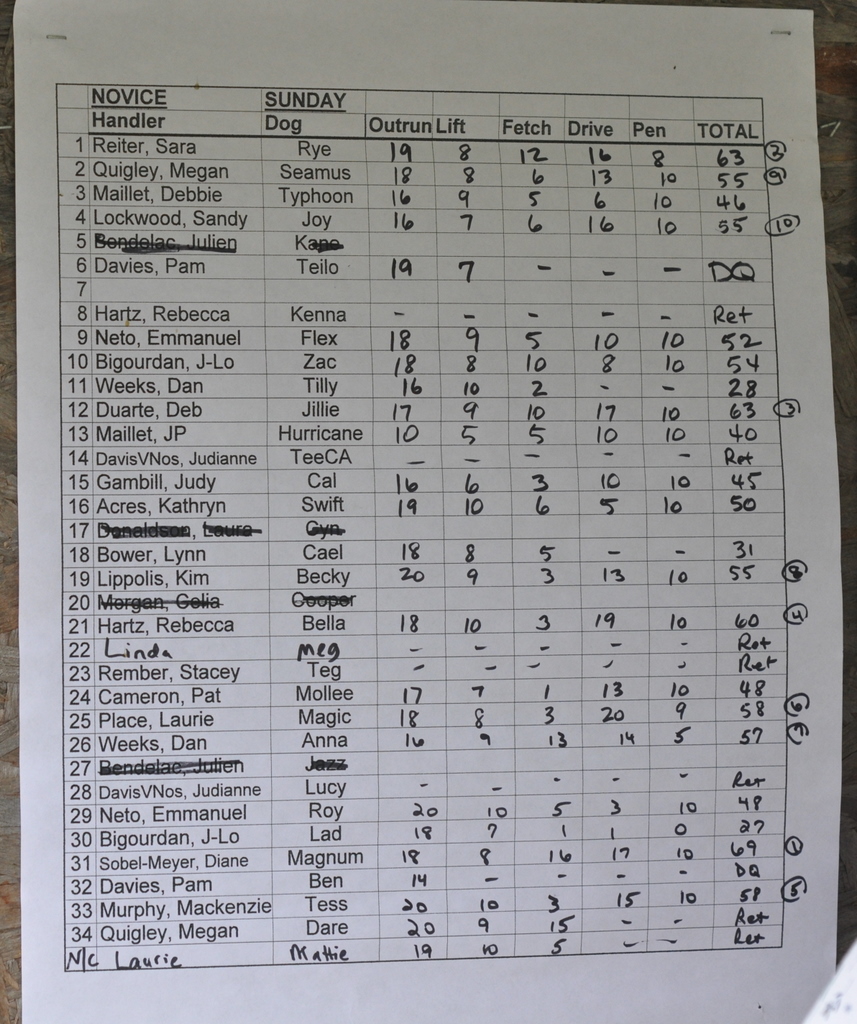 NOVICE SUNDAY
Handler Dog Outrun Lift Fetch Drive Pen TOTAL
1 Reiter, Sara Rye 19 8 12 16 8 63 2
2 Quigley, Megan Seamus 18 8 6 13 10 55 9
3 Maillet, Debbie Typhoon 16 9 5 6 10 46
4 Lockwood, Sandy Joy 16 7 6 16 10 55 10
5 Bendelac, Julien Kane
6 Davies, Pam Teilo 19 7 - - - DQ
7
8 Hartz, Rebecca Kenna - - - - - Ret
9 Neto, Emmanuel Flex 18 9 5 10 10 52
10 Bigourdan, J-Lo Zac 18 8 10 8 10 54
11 Weeks, Dan Tilly 16 10 2 - - 28
12 Duarte, Deb Jillie 17 9 10 17 10 63 3
13 Maillet, JP Hurricane 10 5 5 10 10 40
14 DavisVNos, Judianne TeeCA - - - - - Ret
15 Gambill, Judy Cal 16 6 3 10 10 45
16 Acres, Kathryn Swift 19 10 6 5 10 50
17 Donaldson, Laura Gyn
18 Bower, Lynn Cael 18 8 5 - - 31
19 Lippolis, Kim Becky 20 9 3 13 10 55 8
20 Morgan, Celia Cooper
21 Hartz, Rebecca Bella 18 10 3 19 10 60 4
22 Linda Meg - - - - - Ret
23 Rember, Stacey Teg - - - - - Ret
24 Cameron, Pat Mollee 17 7 1 13 10 48
25 Place, Laurie Magic 18 8 3 20 9 58 6
26 Weeks, Dan Anna 16 9 13 14 5 57 7
27 Bendelac, Julien Jazz
28 DavisVNos, Judianne Lucy - - - - - Ret
29 Neto, Emmanuel Roy 20 10 5 3 10 48
30 Bigourdan, J-Lo Lad 18 7 1 1 0 27
31 Sobel-Meyer, Diane Magnum 18 8 16 17 10 69 1
32 Davies, Pam Ben 14 - - - - DQ
33 Murphy, Mackenzie Tess 20 10 3 15 10 58 5
34 Quigley, Megan Dare 20 9 15 - - Ret
N/C Laurie Mattie 19 10 5 - - Ret